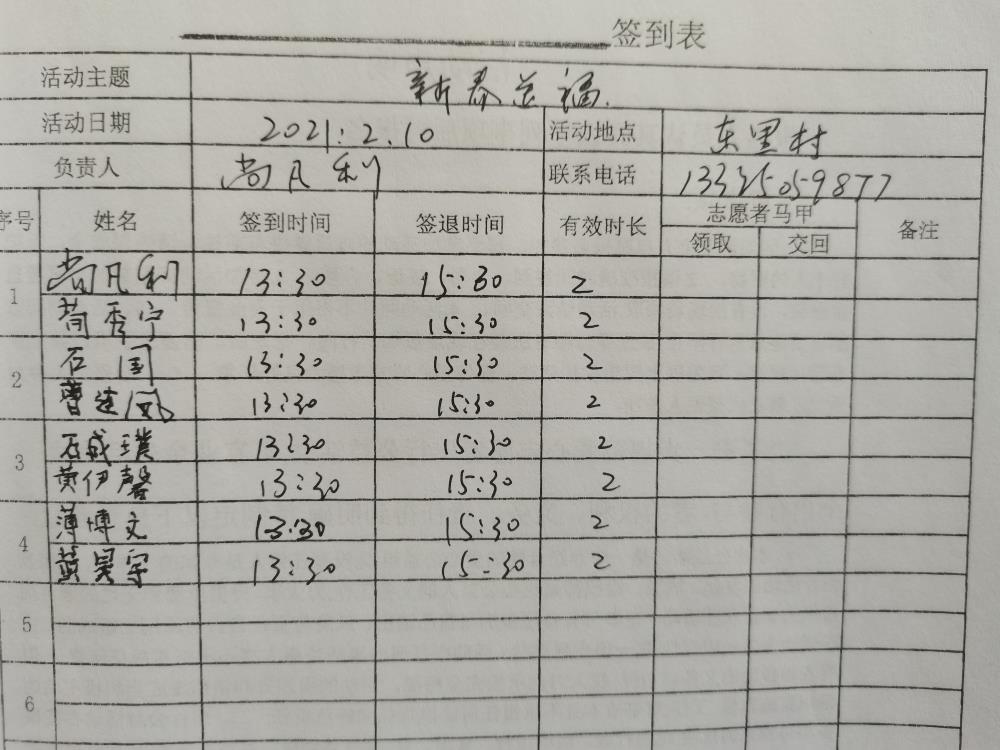 签到表
活动主题 新春送福
活动日期 2021.2.10 活动地点 东里村
负责人 尚凡利 联系电话 13325059877
序号 姓名 签到时间 签退时间 有效时长 志愿者马甲 备注
领取 交回
1 尚凡利 13:30 15:30 2
荀秀宁 13:30 15:30 2
2 石国 13:30 15:30 2
曹连凤 13:30 15:30 2
3 石成璞 13:30 15:30 2
黄伊馨 13:30 15:30 2
4 薄博文 13:30 15:30 2
黄昊宇 13:30 15:30 2
5
6